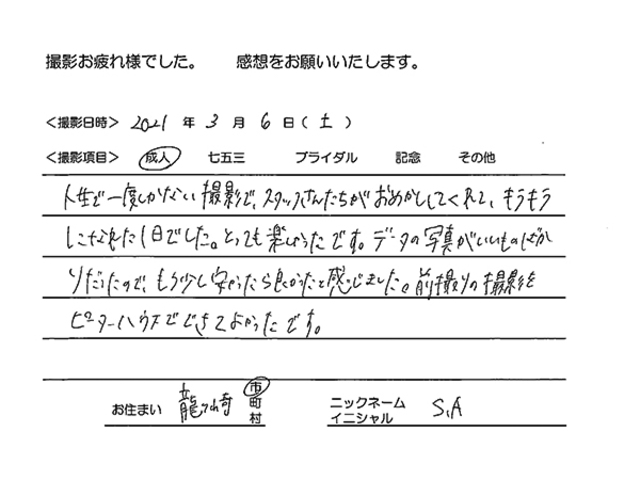 撮影お疲れ様でした。 感想をお願いいたします。
＜撮影日時＞ 2021 年 3 月 6 日（土）
＜撮影項目＞ 成人 七五三 ブライダル 記念 その他
人生で一度しかない撮影で、スタッフさんたちがおめかししてくれて、もうもう
しこなれた1日でした。とっても楽しかったです。データの写真がいいものばか
りだったので、もう少し安かったら良かったと感じました。前撮りの撮影を
ピーターハウスでできてよかったです。
お住まい 龍ヶ崎 市 町 村
ニックネーム イニシャル S.A